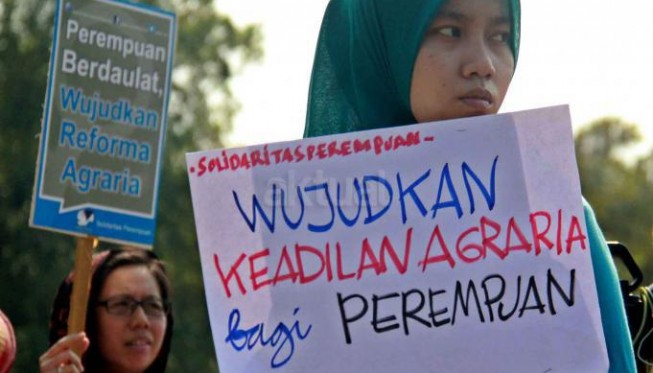 Perempuan
Berdaulat,
Wujudkan
Reforma
Agraria
Solidaritas Perempuan
•SOLIDARITASPEREMPUAN~
WUJUDKAN
KEADILAN AGRARIA
bagi PEREMPUAN
aktual